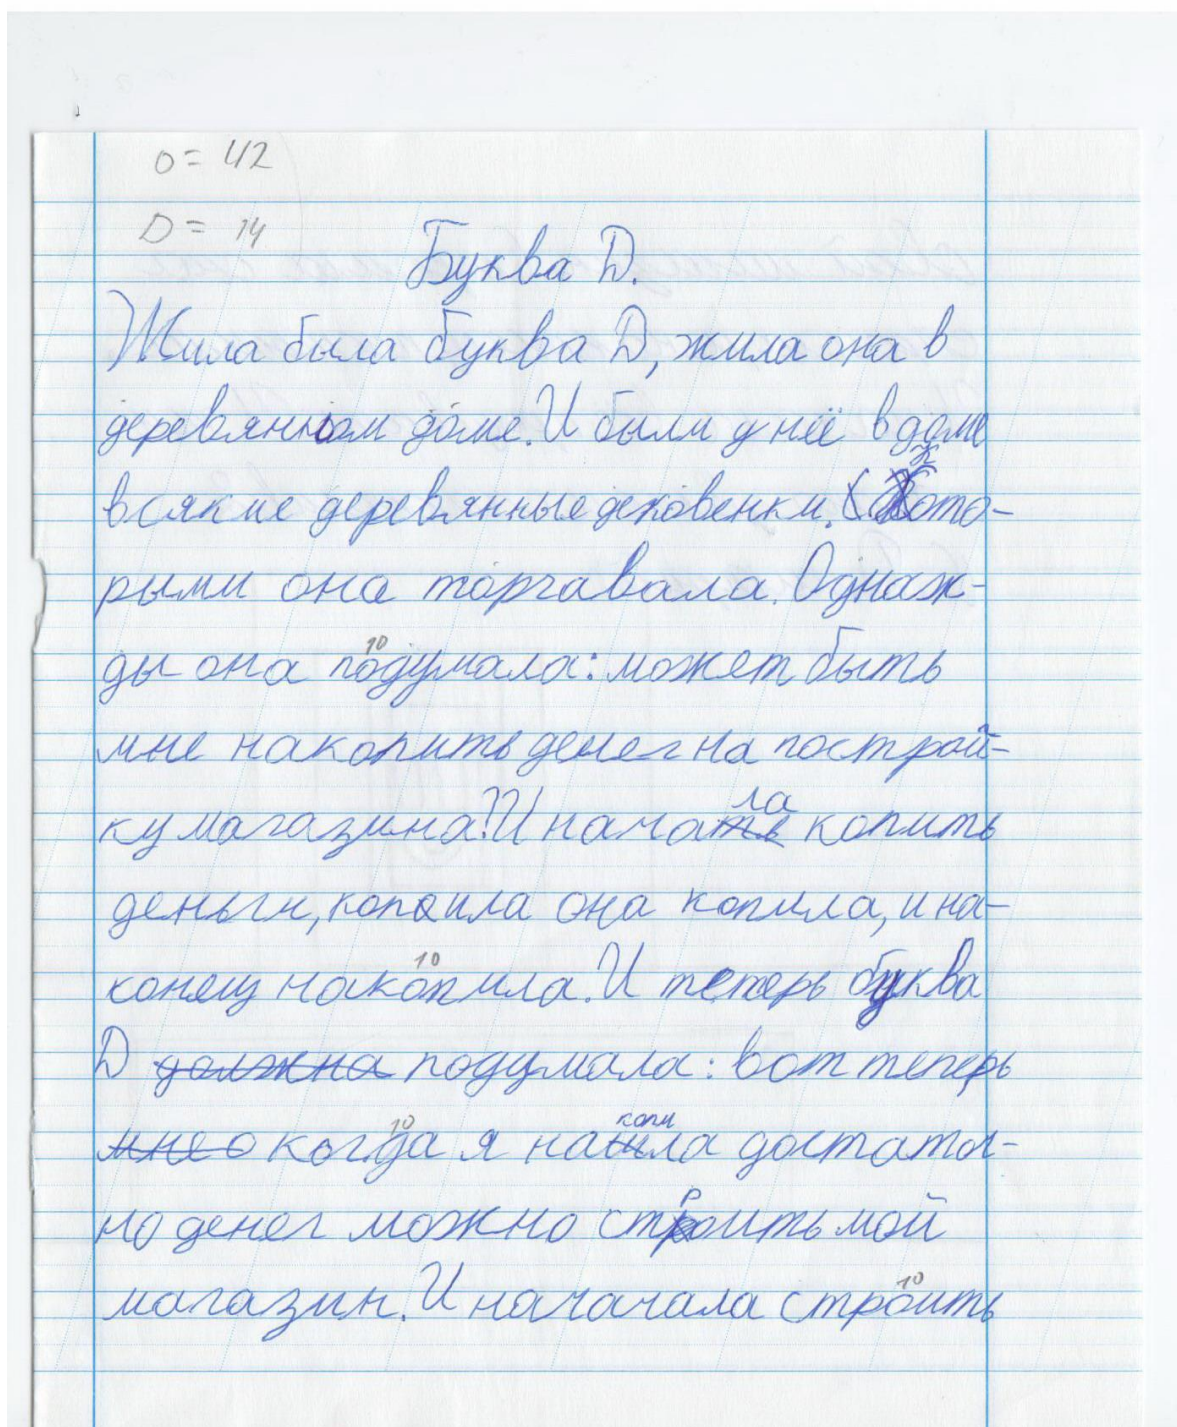 о = 42
D = 14
Буква D.
Жила была буква D, жила она в
деревянном доме. И были у неё в доме
всякие деревянные дековенки. Кото-
рыми она торгавала. Однаж-
ды она подумала: может быть
10
мне накопить денег на построй-
ку магазина? И начать копить
ла
деньги, копоила она копила, и на-
конец накопила. И теперь буква
10
D должна подумала: вот теперь
мне о когда я нашла достаточ-
10 копи
но денег можно строить мой
р
магазин. И начачала строить
10